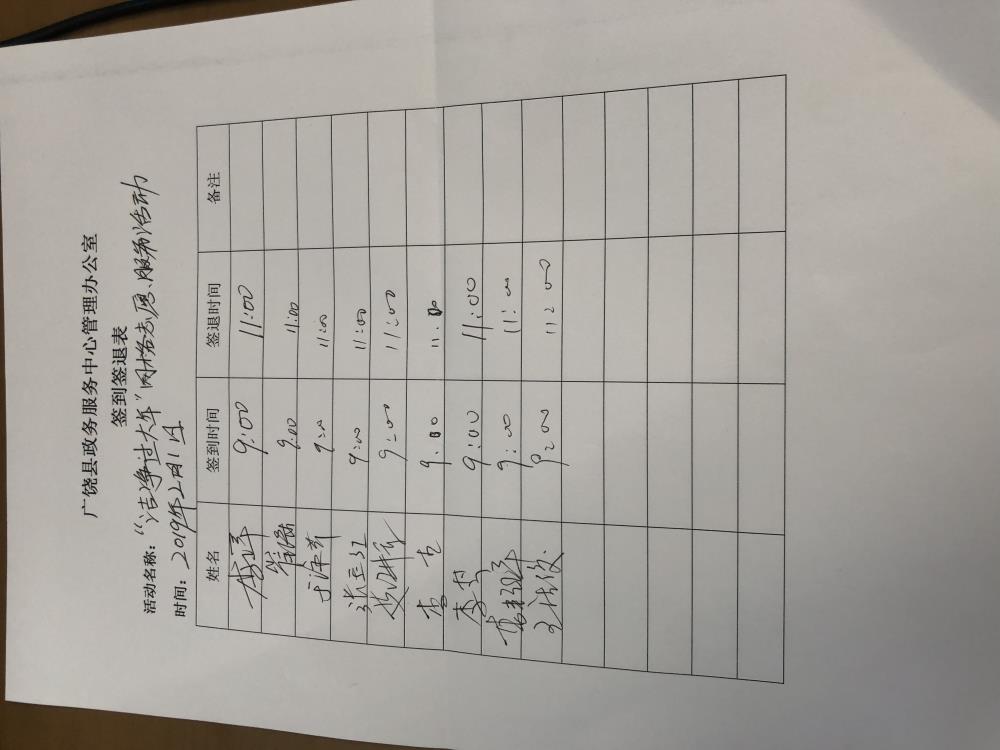 广饶县政务服务中心管理办公室
签到签退表
活动名称：“洁净过大年”网格志愿服务活动
时间：2019年2月1日
姓名 签到时间 签退时间 备注
9:00 11:00
9:00 11:00
9:00 11:00
张立红 9:00 11:00
9:00 11:00
9:00 11:00
李 9:00 11:00
9:00 11:00
9:00 11:00